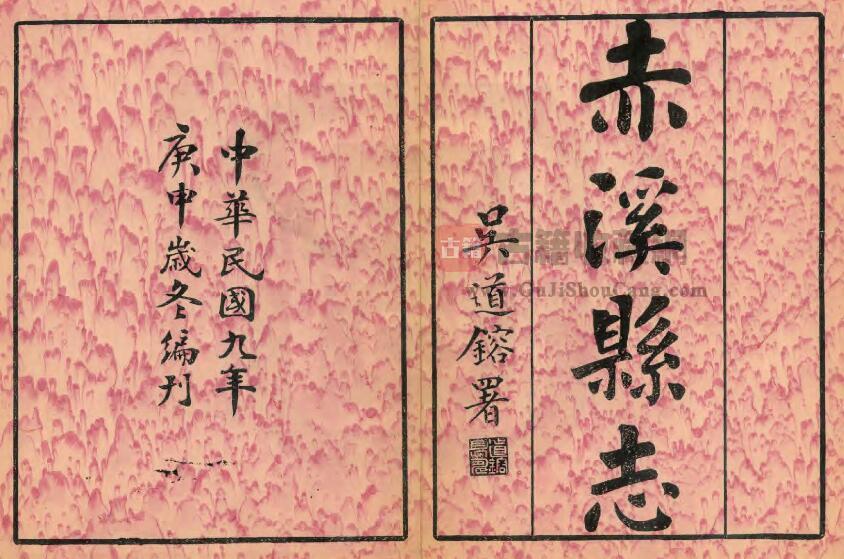 赤溪縣志
吳道鎔署
中華民國九年
庚申歲冬編刊
古籍
www.GuJiShouCang.com